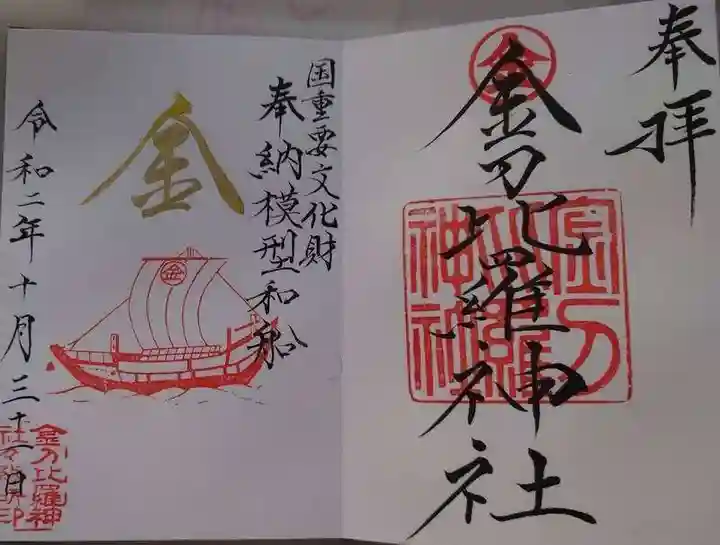 奉拝
金刀比羅神社
金
金刀比羅神社
国重要文化財
奉納模型和船
金
金
令和二年十月三十一日
金刀比羅神